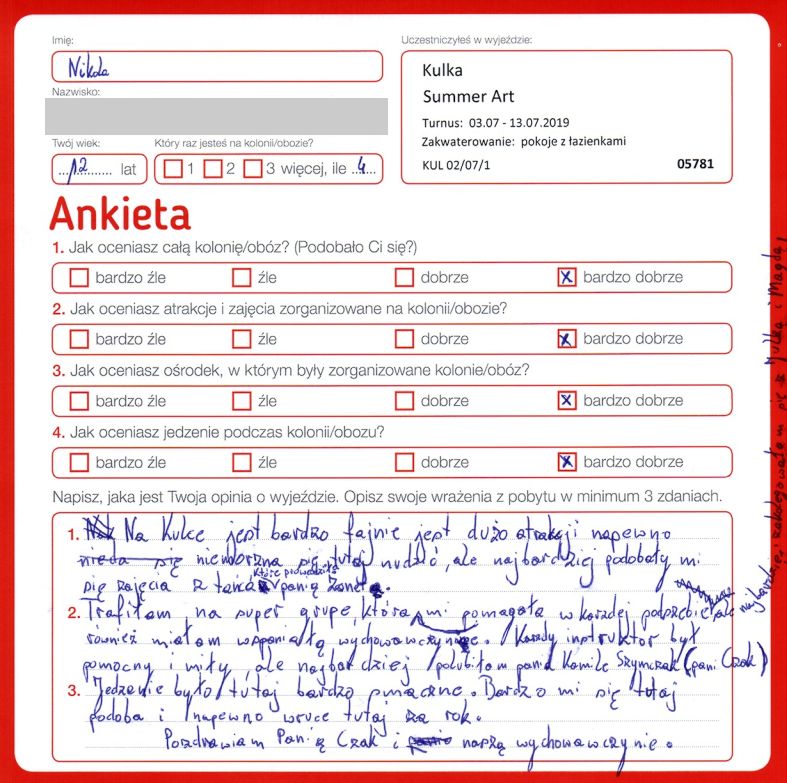 Imię:
Nikola
Nazwisko:
Twój wiek:
12 lat
Który raz jesteś na kolonii/obozie?
1 2 3 więcej, ile 4
Uczestniczyłeś w wyjeździe:
Kulka
Summer Art
Turnus: 03.07 - 13.07.2019
Zakwaterowanie: pokoje z łazienkami
KUL 02/07/1 05781
Ankieta
1. Jak oceniasz całą kolonię/obóz? (Podobało Ci się?)
bardzo źle źle dobrze x bardzo dobrze
2. Jak oceniasz atrakcje i zajęcia zorganizowane na kolonii/obozie?
bardzo źle źle dobrze x bardzo dobrze
3. Jak oceniasz ośrodek, w którym były zorganizowane kolonie/obóz?
bardzo źle źle dobrze x bardzo dobrze
4. Jak oceniasz jedzenie podczas kolonii/obozu?
bardzo źle źle dobrze x bardzo dobrze
Napisz, jaka jest Twoja opinia o wyjeździe. Opisz swoje wrażenia z pobytu w minimum 3 zdaniach.
1. Na Kulce jest bardzo fajnie jest dużo atrakcji napewno
niemorzna się tutaj nudzić, ale najbardziej podobały mi
się zajęcia z tańca które prowadziła panią
2. Trafiłam na super grupe, która mi pomagała w karzdej potrzebie ale najbardziej zakolegowałam się z Julką i Magdą,
również miałam wspaniałą wychowawczynie. Karzdy instruktor był
pomocny i miły, ale najbardziej polubiłam panią Kamile Szymczak (pani Czak)
3. Jedzenie było tutaj bardzo smaczne. Bardzo mi się tutaj
podoba i napewno wruce tutaj za rok.
Pozdrawiam Panią Czak i naszą wychowawczynie.